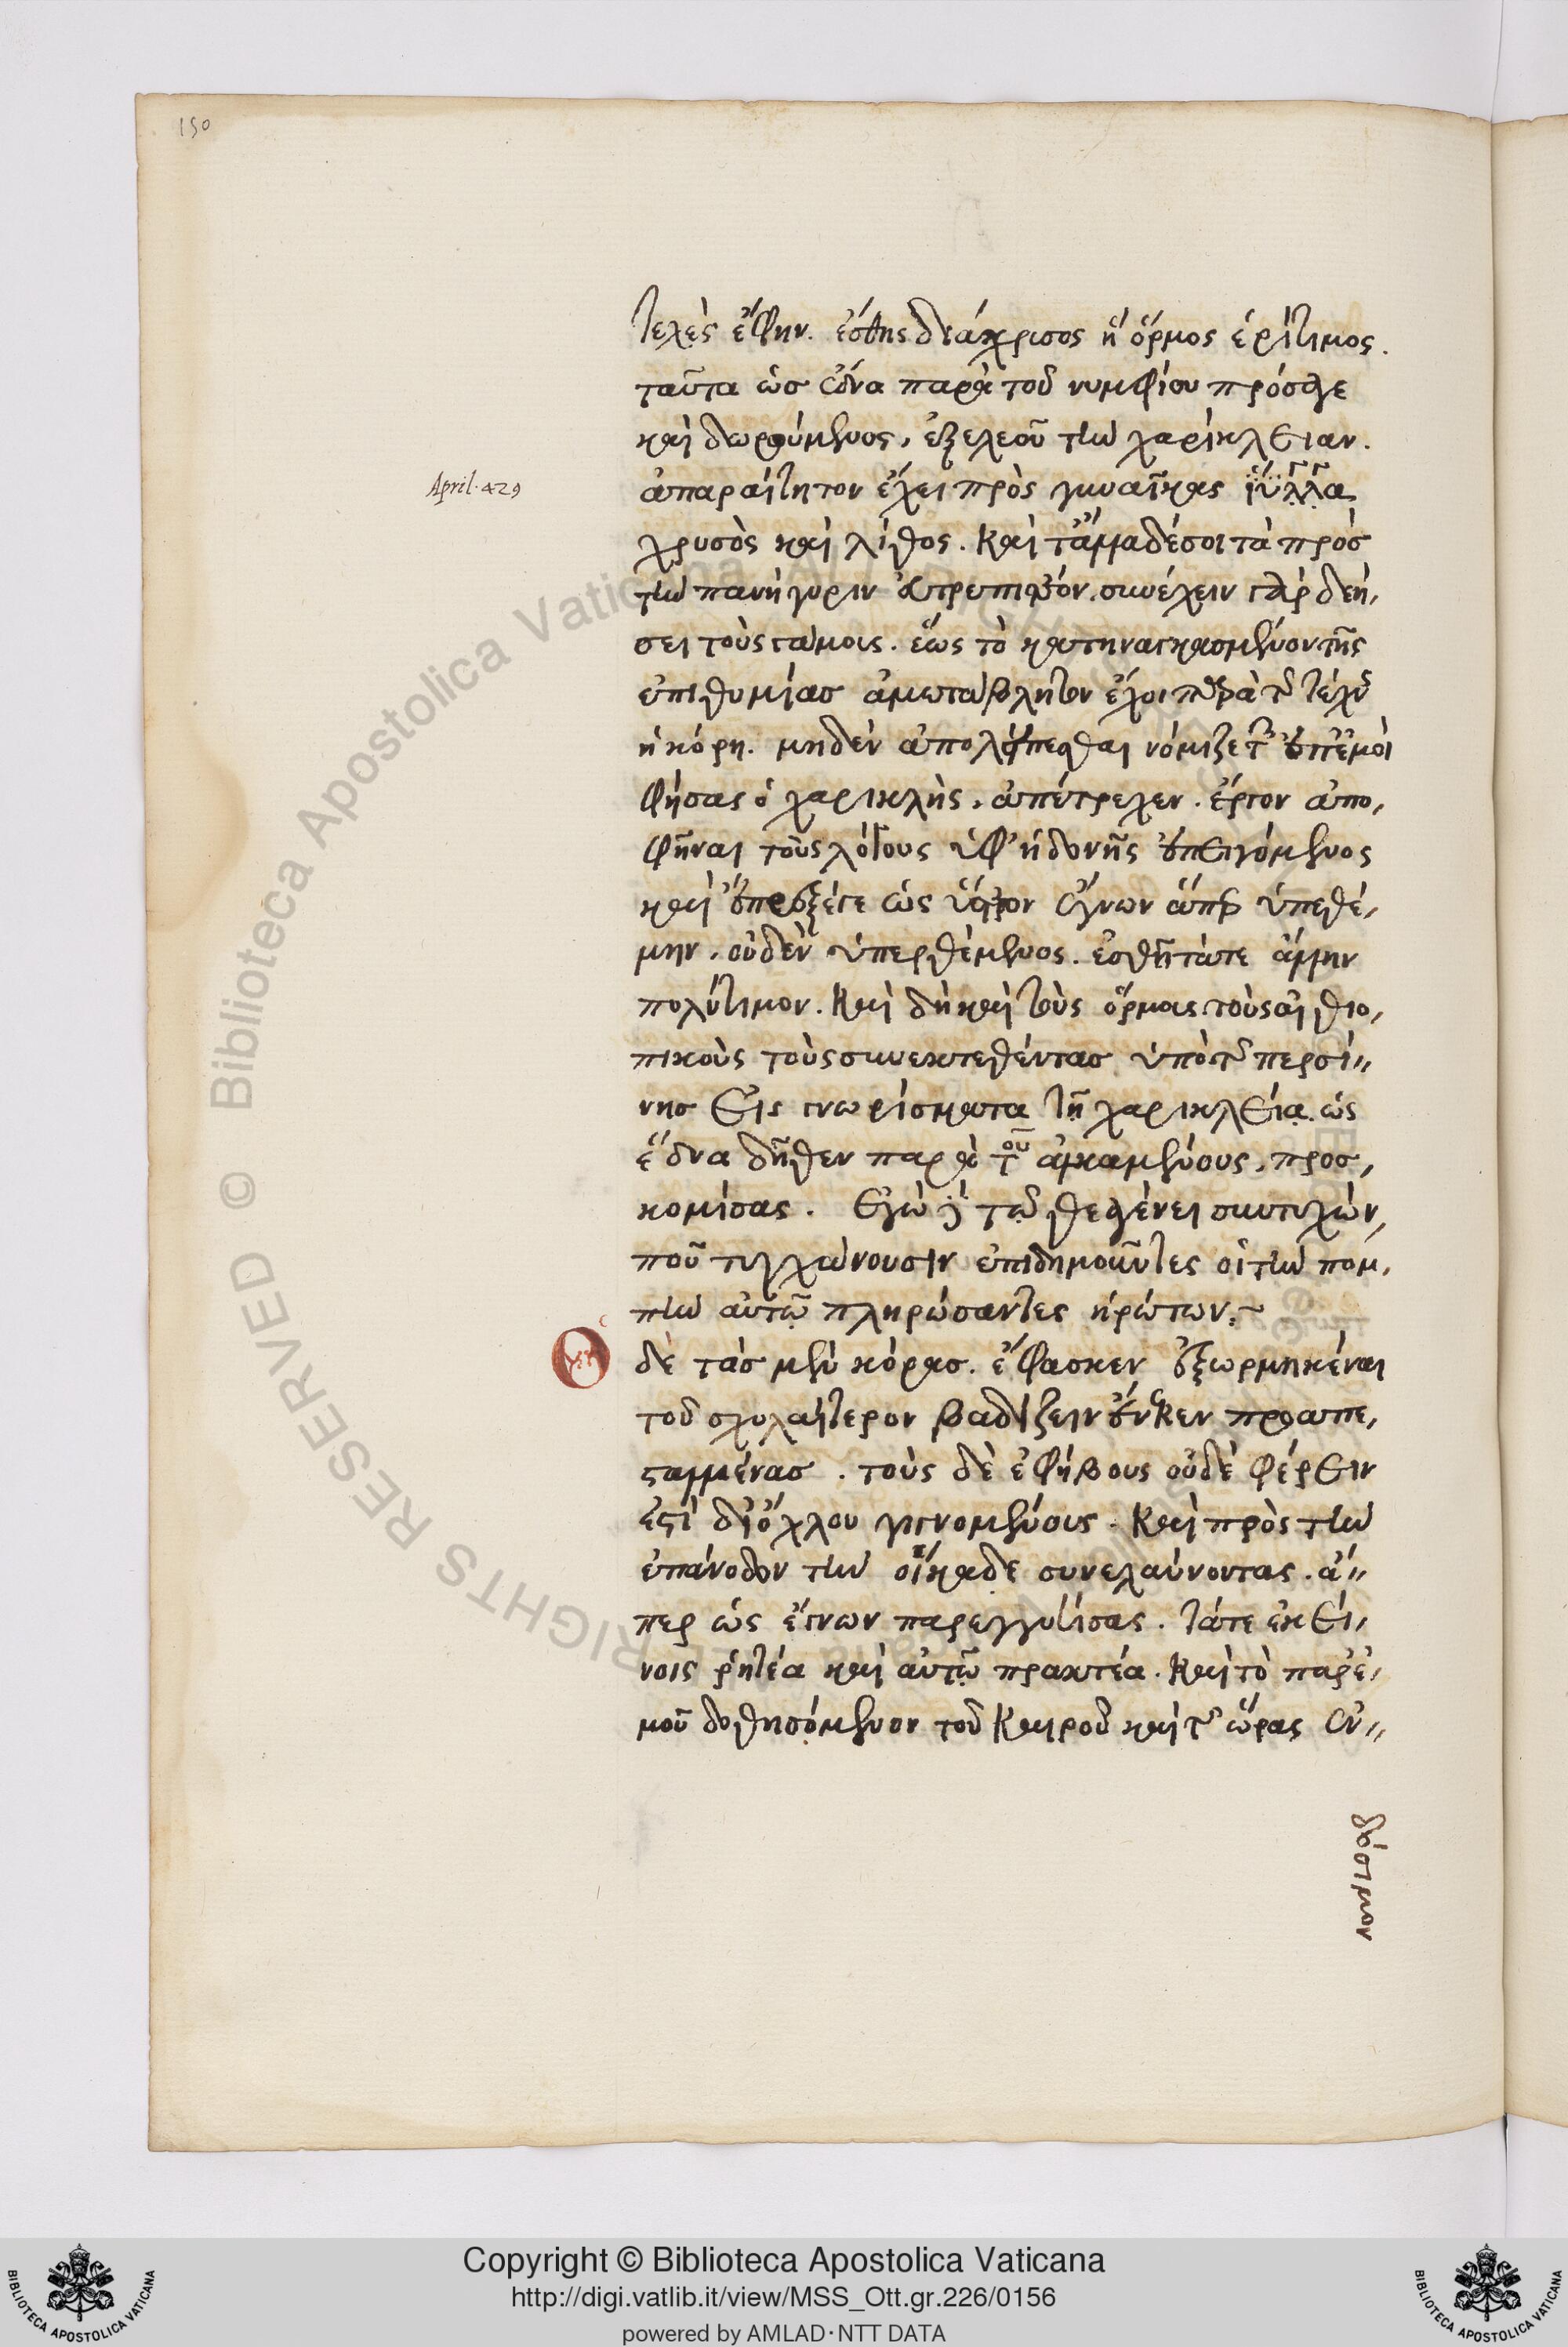 150
τελὲς ἔφην. ἐσθὴς διάχρυσος ἢ ὅρμος ἐρίτιμος.
ταῦτα ὡσ ἕδνα παρὰ τοῦ νυμφίου πρόσαγε
καὶ δωρούμενος, ἐξελεοῦ τὴν χαρίκλειαν.
April. 429
ἀπαραίτητον ἔχει πρὸς γυναῖκας ἴϋγγα
χρυσὸς καὶ λίθος. καὶ τἄλλα δέ σοι τὰ πρὸσ
τὴν πανήγυριν εὐτρεπιστέον. συνέχειν γὰρ δεή,
σει τοὺς γάμους. ἕως τὸ κατηναγκασμένον τῆς
ἐπιθυμίασ ἀμετάβλητον ἔχοι παρὰ τῆς τέχνης
ἡ κόρη. μηδὲν ἀπολείπεσθαι νόμιζε τῶν ἐπ' ἐμοὶ
φήσας ὁ χαρικλὴς, ἀπέτρεχεν. ἔργον ἀπο,
φῆναι τοὺς λόγους ὑφ' ἡδονῆς ἐπειγόμενος
καὶ ἔπραξέ γε ὡς ὕστερον ἔγνων ἅπερ ὑπεθέ,
μην, οὐδὲν ὑπερθέμενος. ἐσθῆτά τε ἄλλην
πολύτιμον. καὶ δὴ καὶ τοὺς ὅρμους τοὺς αἰθιο,
πικοὺς τοὺς συνεκτεθέντασ ὑπὸ τῆς περσί,,
νησ εἰς γνωρίσματα τῇ χαρικλείᾳ. ὡς
ἕδνα δῆθεν παρὰ τοῦ ἀλκαμένους, προσ,
κομίσας. ἐγὼ δὲ τῷ θεαγένει συντυχὼν,
ποῦ τυγχάνουσιν ἐπιδημοῦντες οἱ τὴν πομ,
πὴν αὐτῷ πληρώσαντες ἠρώτων.
Ὁ δὲ τὰσ μὲν κόρασ. ἔφασκεν ἐξωρμηκέναι
τοῦ σχολαίτερον βαδίζειν ἕνεκεν προαπε,
σταλμένασ. τοὺς δὲ ἐφήβους οὐδὲ φέρειν
ἔτι δι' ὄχλου γινομένους. καὶ πρὸς τὴν
ἐπάνοδον τὴν οἴκαδε συνελαύνοντας. ἅ,,
περ ὡς ἔγνων παρεγγυήσας. τά τε ἐκεί,
νοις ῥητέα καὶ αὐτῷ πρακτέα. καὶ τὸ παρ' ἐ,
μοῦ δοθησόμενον τοῦ καιροῦ καὶ τῆς ὥρας ἐν,,
δόσιμον